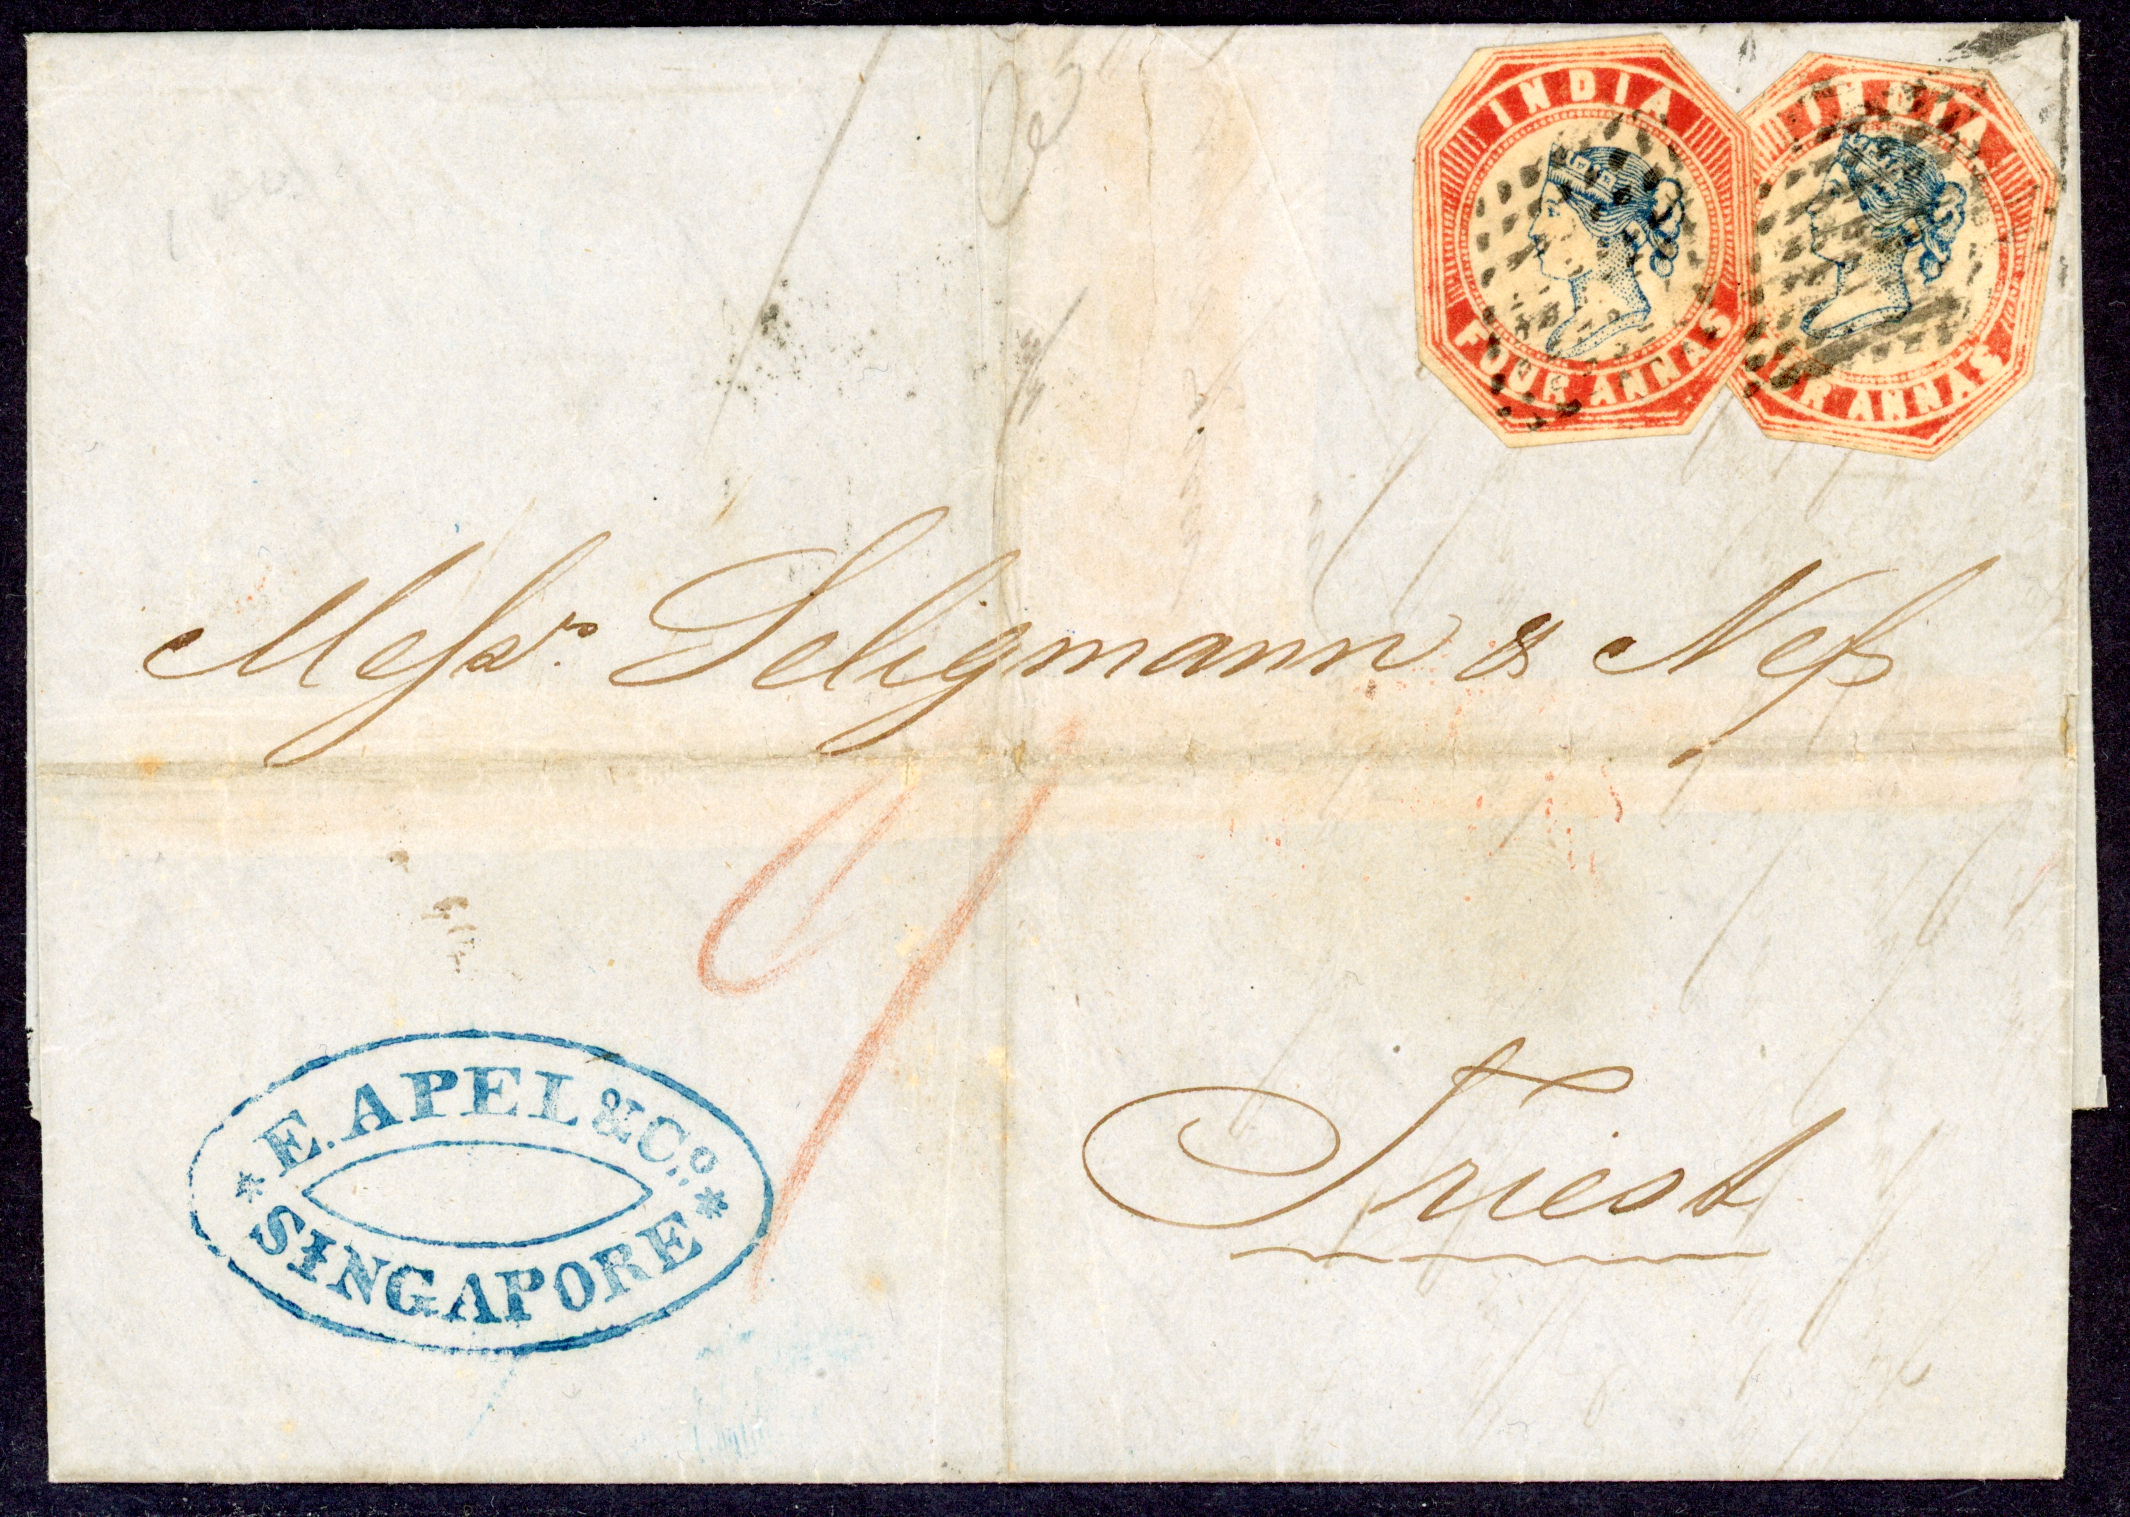 INDIA
FOUR ANNAS
INDIA
FOUR ANNAS
Messrs. Seligmann & Ness
Triest
E. APEL & Co.
SINGAPORE